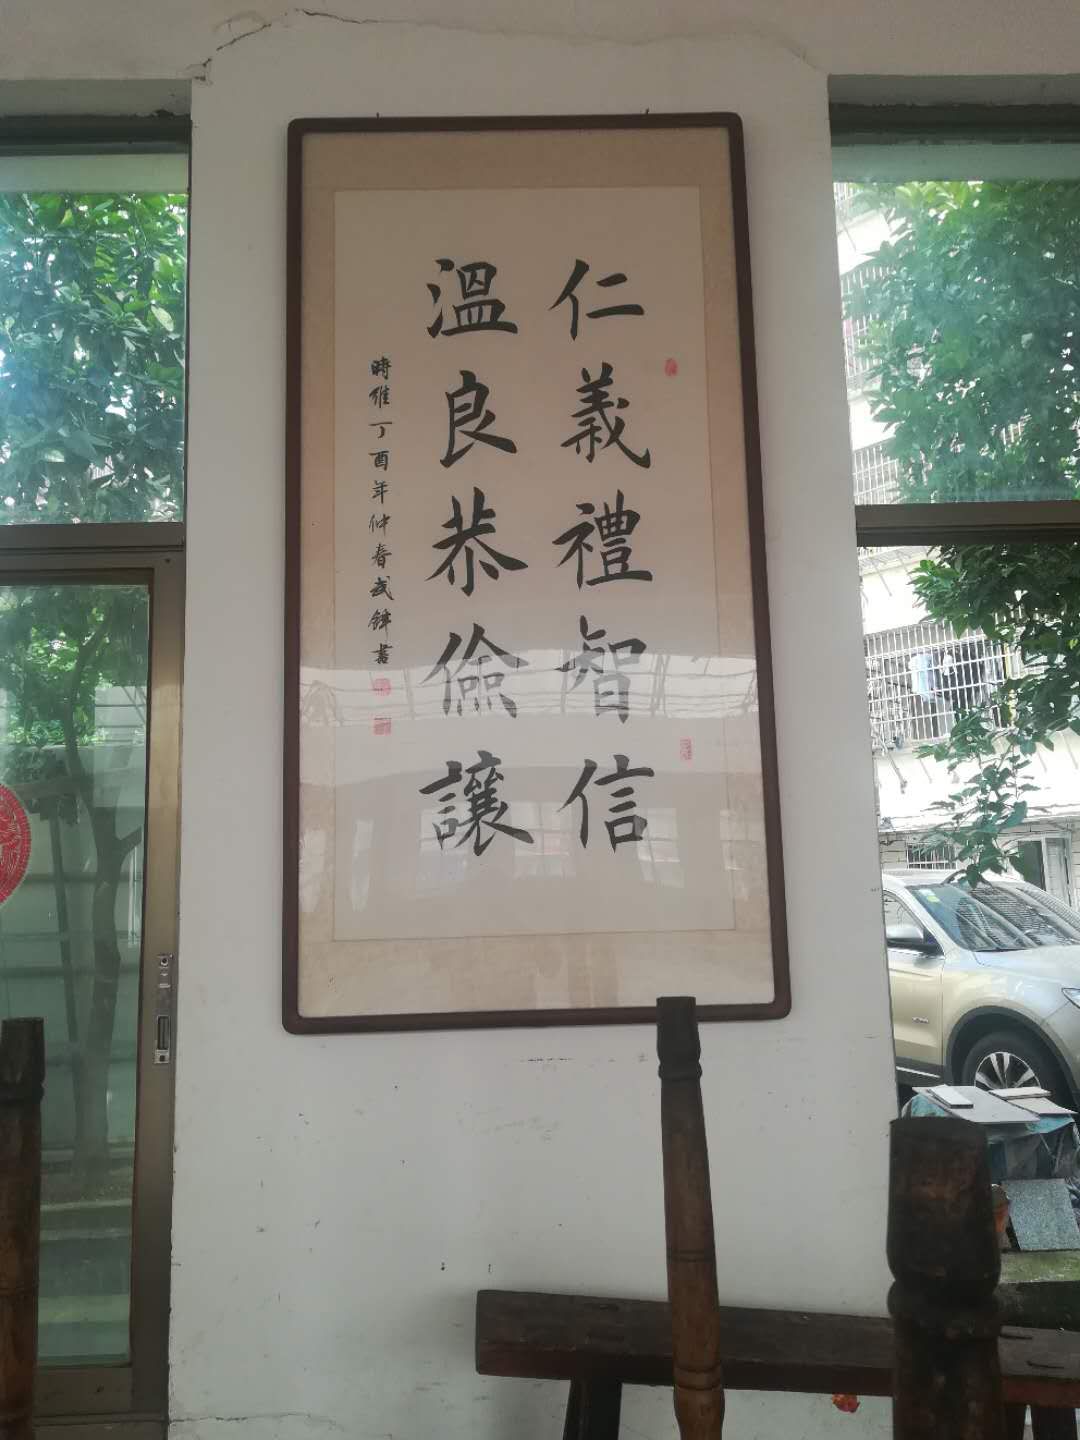 仁義禮智信
溫良恭儉讓
時維丁酉年仲春武鋒書